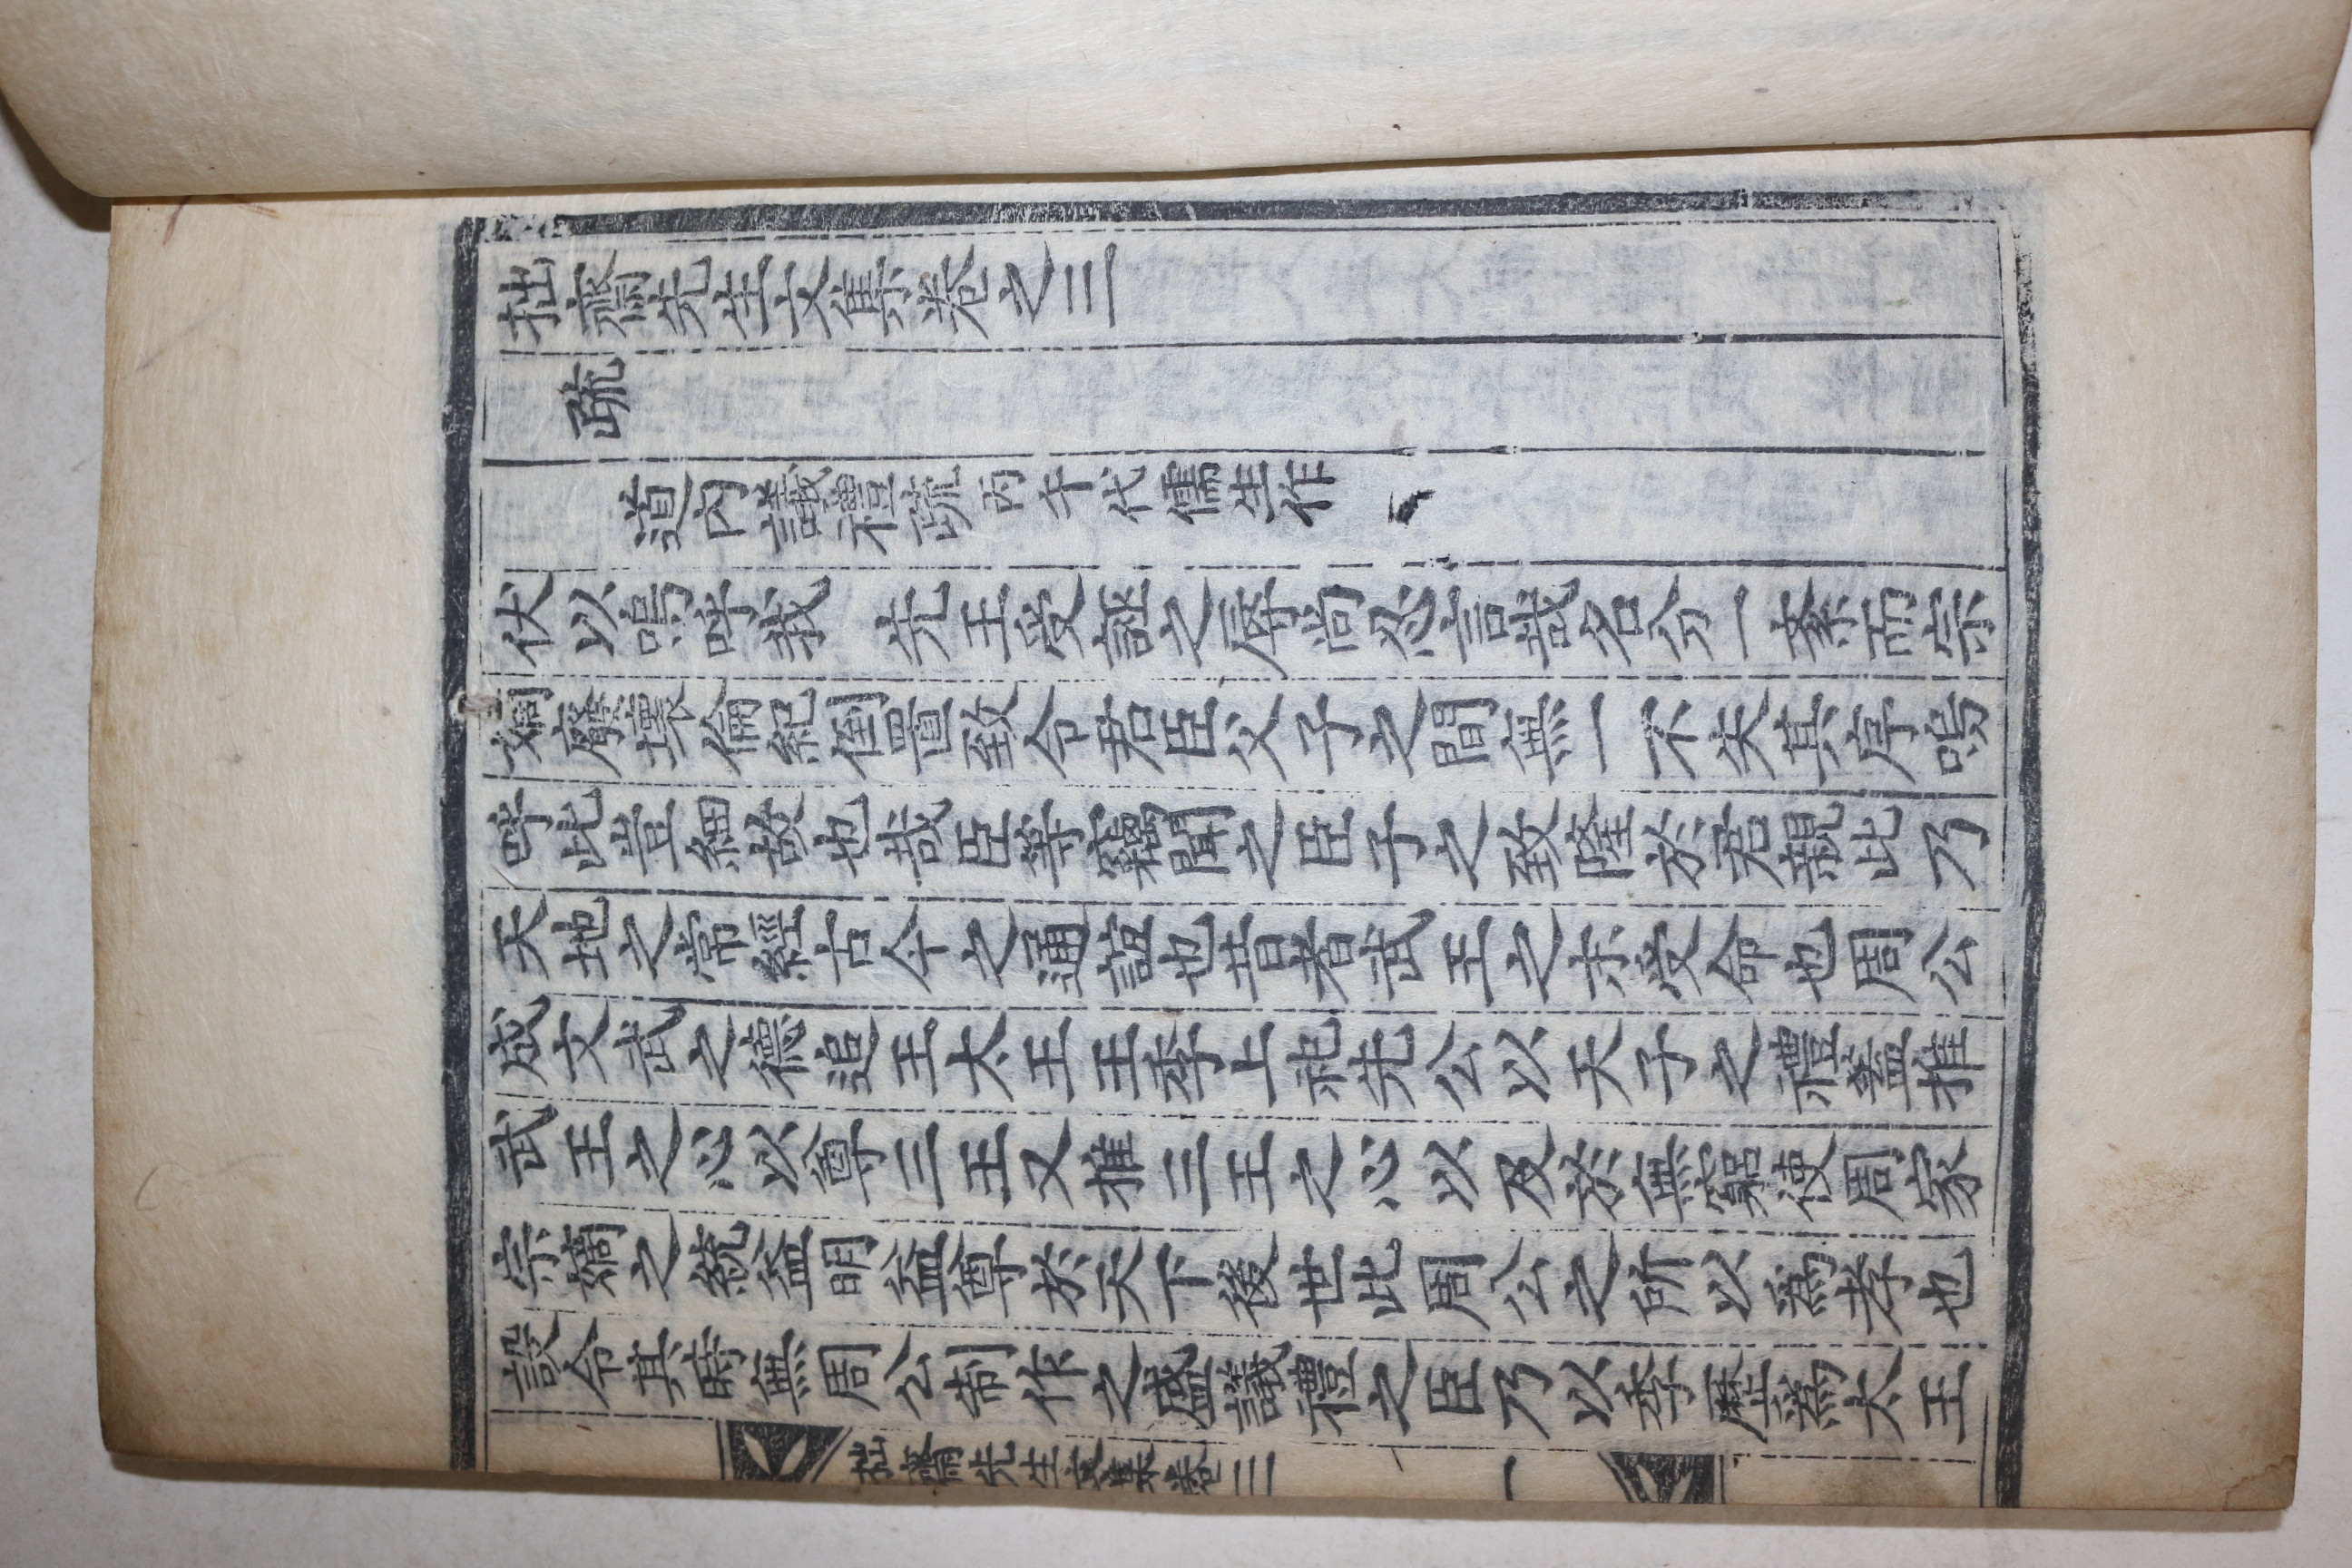 拙齋先生文集卷之三
疏
道內議禮疏 丙午代儒生作
伏以嗚呼我 先王受誣之辱尙忍言哉名分一紊而宗
嫡廢壞倫紀倒置致令君臣父子之間無一不失其序嗚
呼此豈細故也哉臣等竊聞之臣子之致隆於君親此乃
天地之常經古今之通誼也昔者武王之末受命也周公
成文武之德追王太王王季上祀先公以天子之禮蓋推
武王之心以尊三王又推三王之心以及於無窮使周家
宗嫡之統益明益尊於天下後世此周公之所以爲孝也
設令其時無周公制作之盛議禮之臣乃以季歷爲太王
拙齋先生文集卷三 一